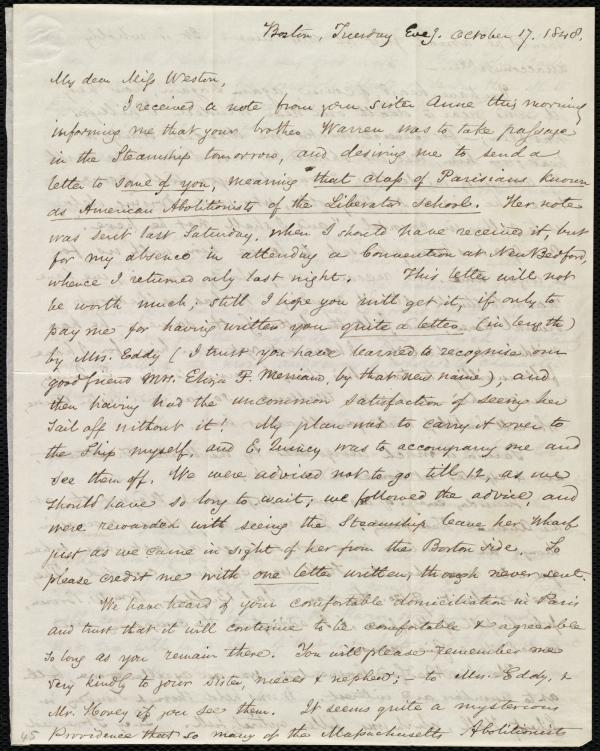 Boston, Tuesday Eveg. October 17, 1848.
My dear Miss Weston,
I received a note from your sister Anne this morning,
informing me that your brother Warren was to take passage
in the Steamship tomorrow, and desiring me to send a
letter to some of you, meaning "that class of Parisians known
as American Abolitionists of the Liberator school. Her note
was sent last Saturday, when I should have received it but
for my absence in attending a Convention at New Bedford,
whence I returned only last night. This letter will not
be worth much; still I hope you will get it, if only to
pay me for having written you quite a letter (in length)
by Mrs. Eddy (I trust you have learned to recognise our
good friend Mrs. Eliza F. Merriam, by that new name), and
then having had the uncommon satisfaction of seeing her
sail off without it! My plan was to carry it over to
the Ship myself, and E. Quincy was to accompany me and
see them off. We were advised not to go till 12, as we
should have so long to wait; we followed the advice, and
were rewarded with seeing the Steamship leave her Wharf
just as we came in sight of her from the Boston side. So
please credit me with one letter written, though never sent.
We have heard of your comfortable domiciliation in Paris
and trust that it will continue to be comfortable & agreeable
so long as you remain there. You will please remember me
very kindly to your sister, nieces & nephew; – to Mrs. Eddy, &
Mr. Hovey, if you see them. It seems quite a mysterious
Providence that so many of the Massachusetts Abolitionists